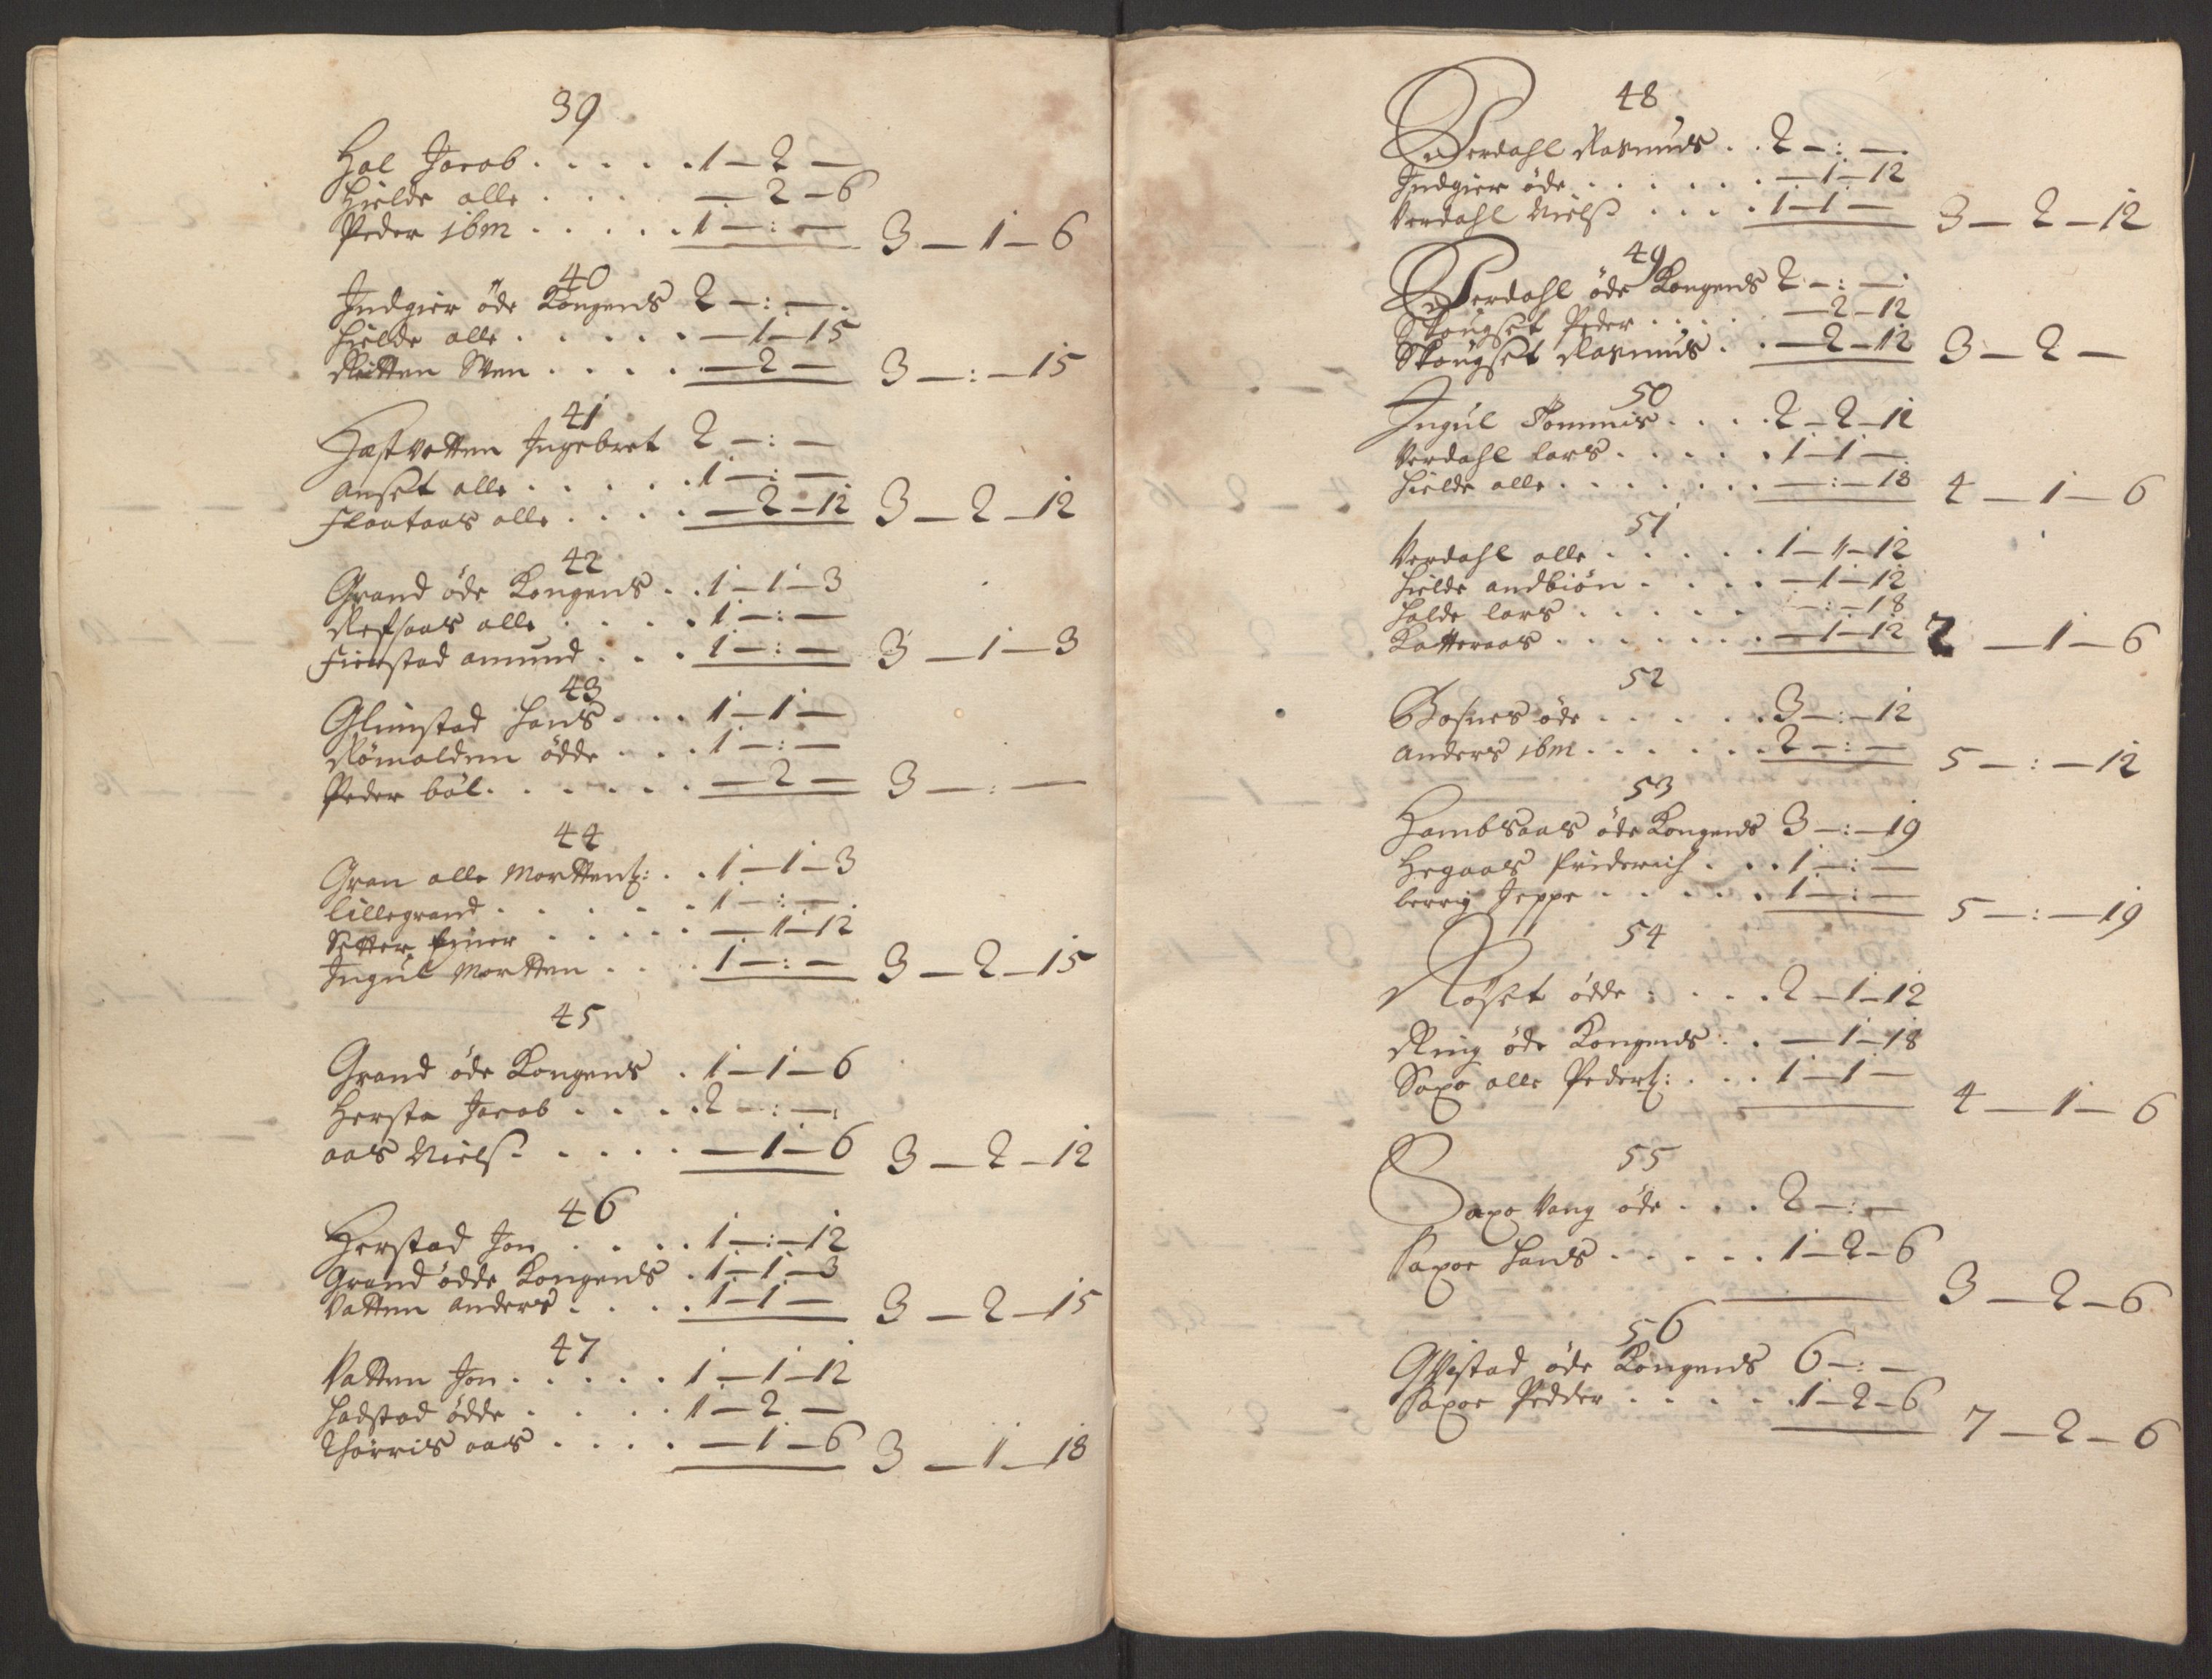 39
Hal Jacob . . . . . 1 — 2 —
Hielde alle . . . . — 2 — 6
Peder ibm . . . . . 1 — : — 3 — 1 — 6
40
Indgier öde Kongens 2 — : —
Hielde alle . . . . . — 1 — 15
Ritten Sven . . . . — 2 — 3 — : — 15
41
Hastvatten Ingebret 2 — : —
anset alle . . . . . 1 — : —
Flaataas alle . . . . — 2 — 12 3 — 2 — 12
42
Grand öde Kongens . . 1 — 1 — 3
Refsaas alle . . . . 1 — : —
Fierstad amund . . . 1 — : — 3 — 1 — 3
43
Glimstad Hans . . . 1 — 1 —
Römolden ödde . . . 1 — : —
Peder böl . . . . . . — 2 — 3 — : —
44
Gran alle Morttens: . . 1 — 1 — 3
Lillegrand . . . . . 1 — : —
Setter Einer . . . . . — 1 — 12
Ingul Mortten . . . . 1 — : — 3 — 2 — 15
45
Grand öde Kongens . 1 — 1 — 6
Hersta Jacob . . . . 2 — : —
aas Niels . . . . . — 1 — 6 3 — 2 — 12
46
Herstad Jon . . . . 1 — : — 12
Grand ödde Kongens . 1 — 1 — 3
Vatten anders . . . . 1 — 1 — 3 — 2 — 15
47
Vatten Jon . . . . . 1 — 1 — 12
Hadstad ödde . . . . 1 — 2 —
Thorris aas . . . . — 1 — 6 3 — 1 — 18
48
Verdahl Rasmus . . 2 — : —
Indgier öde . . . . . . — 1 — 12
Verdahl Niels . . . . 1 — 1 — 3 — 2 — 12
49
Verdahl öde Kongens 2 — : —
Skougset Peder . . . . — 2 — 12
Skougset Rasmus . . — 2 — 12 3 — 2 —
50
Ingul Tommis . . . . 2 — 2 — 12
Verdahl Lars . . . . . 1 — 1 —
Hielde alle . . . . . . . — : — 18 4 — 1 — 6
51
Verdahl alle . . . . . 1 — 1 — 12
Hielde andbiön . . . . — 1 — 12
Halde Lars . . . . . — : — 18
Katteraas . . . . . . . — 1 — 12 2 — 1 — 6
52
Bosnes öde . . . . . . 3 — : — 12
Anders ibm . . . . . . 2 — : — 5 — : — 12
53
Hambsaas öde Kongens 3 — : — 19
Hegaas Friderich . . . 1 — : —
berrig Jeppe . . . . . 1 — : — 5 — : — 19
54
Röset ödde . . . . 2 — 1 — 12
Ring öde Kongens . . — 1 — 18
Saxo alle Peders: . . . 1 — 1 —
4 — 1 — 6
55
Saxo Vang öde . . . 2 — : —
Saxoe Hans . . . . . 1 — 2 — 6
3 — 2 — 6
56
Qvistad öde Kongens 6 — : —
Saxoe Pedder . . . . . 1 — 2 — 6
7 — 2 — 6